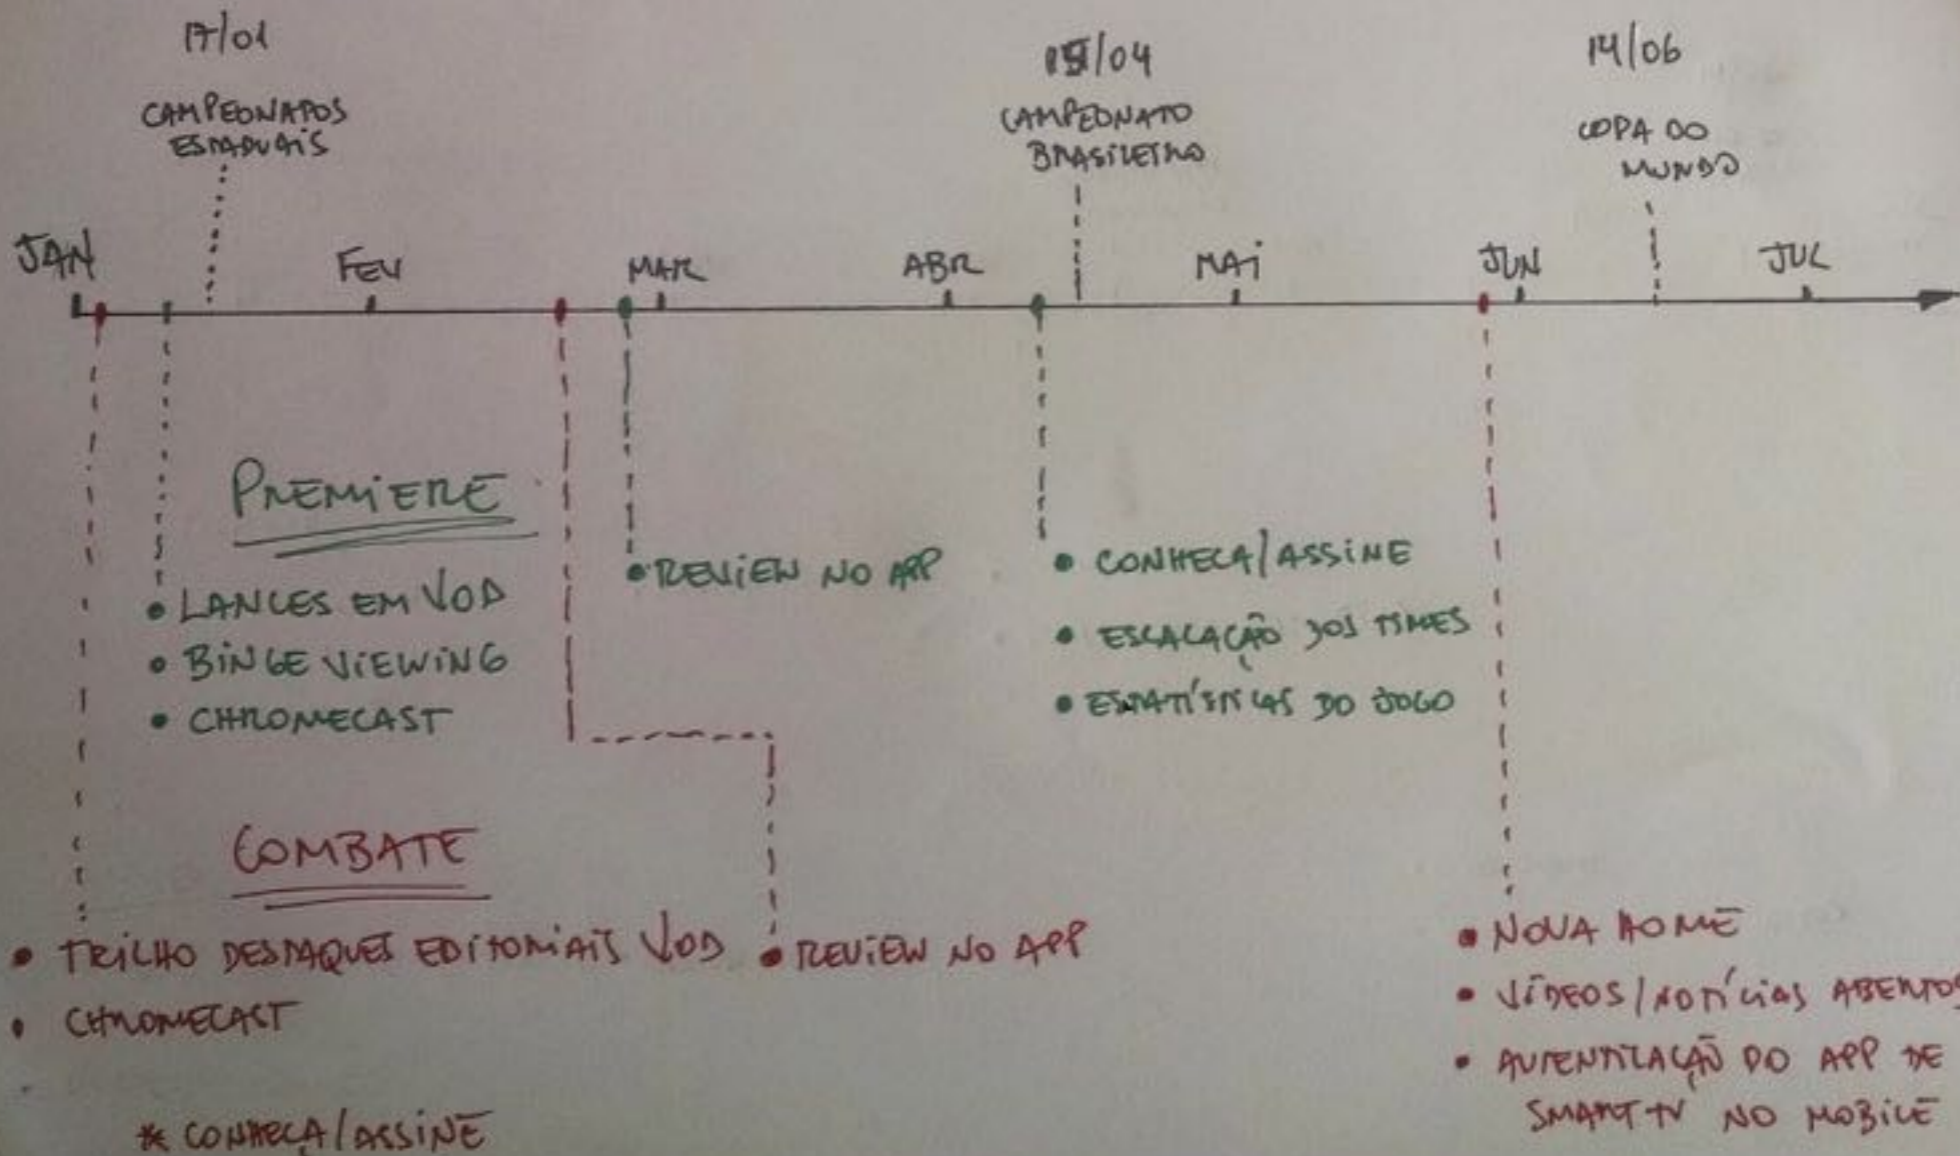 17/01
CAMPEONATOS
ESTADUAIS
/04
CAMPEONATO
BRASILEIRO
14/06
COPA DO
MUNDO
JAN
FEV
MAR
ABR
MAI
JUN
JUL
PREMIERE
• LANCES EM VOD
• BINGE VIEWING
• CHROMECAST
• REVIEW NO APP
• CONHEÇA/ASSINE
• ESCALAÇÃO DOS TIMES
• ESTATÍSTICAS DO JOGO
COMBATE
• TRILHO DESTAQUES EDITORIAIS VOD
• CHROMECAST
* CONHEÇA/ASSINE
• REVIEW NO APP
• NOVA HOME
• VÍDEOS/NOTÍCIAS ABERTOS
• AUTENTICAÇÃO DO APP DE
SMART TV NO MOBILE